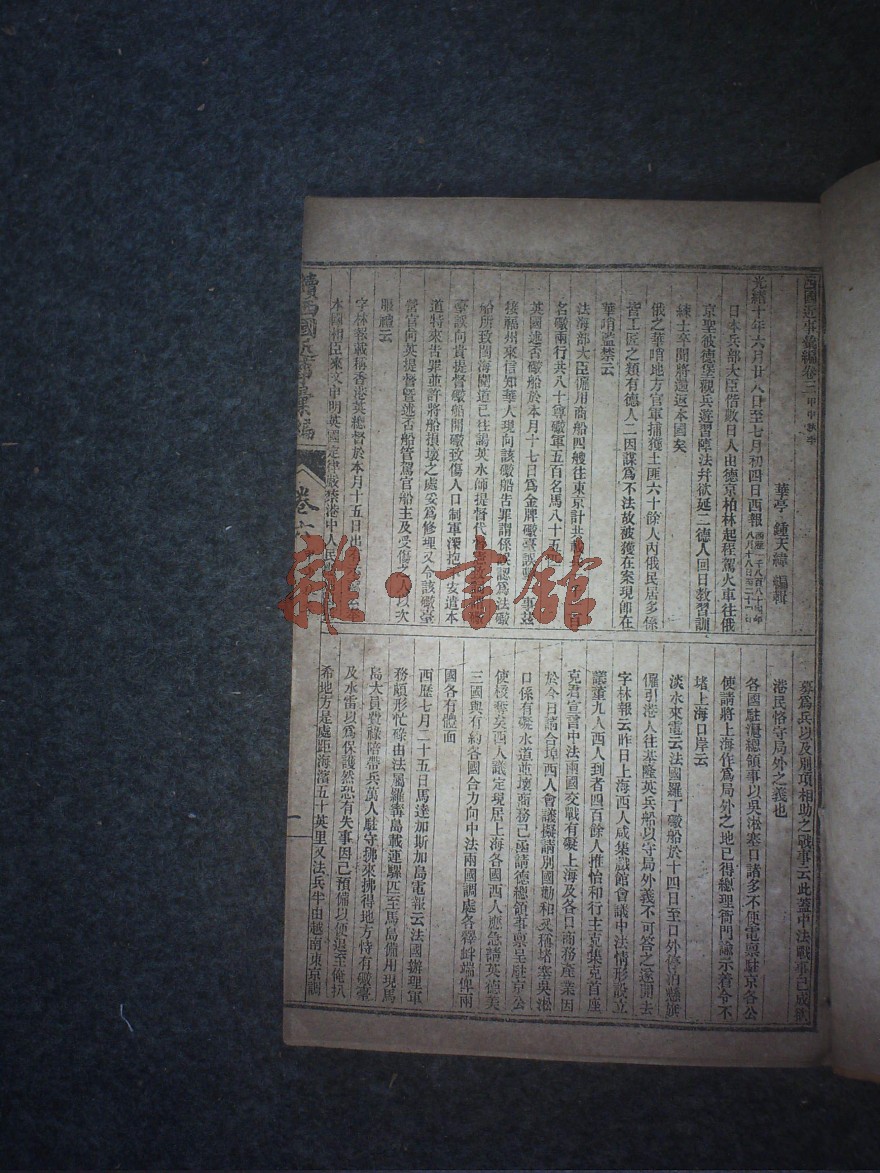 西國近事彙編卷二 甲申秋季
華亭 鍾天緯 編輯
光緒十年六月廿八日至七月初四日西報 西歷一千八百八十四年八月十八日至二十四日
日本兵部大臣偕數日人由德京柏林起程駕火車往俄
京聖彼德堡觀兵遊習陣法幷欲延二德人回日教習訓
練士卒聞將還返本國矣
俄之華哨地方官軍捕獲土匪六十餘人內俄民居多係
官工匠之類有德人二因謀爲不法故被獲在案現卽在
華哨監禁云
法海部大臣僱用商船四艘往東京計共載
名礮兩行共八十尊礮軍五百名馬八十五
英國述否礮船於本月十七日爲金牌礮臺誤擊一事玆
接福州來信知華人現向該礮船告罪謂係誤認爲法礮
船所致閩海關道已往謁英水師提督代
臺誤向貴提督礮船開礮致傷人口制軍深抱不安遣本
道特來告罪並許將船損壞之處妥爲修理又令該礮臺
營官向英提督暨述否船管駕官船主及受傷之人以次
服禮云
字林報載稱香港英總督於本月十五日出
本國相臣來文申明英國定律嚴禁港中人民
募爲兵以及別項相助之戰事云此蓋中法戰事已成飭
港民恪守局外之義也
各國駐滬總領事以吳淞塞口諸多不便電稟駐京各公
使請將上海作爲局外之地已得總理衙門諭示着令不
堵上海口岸云
淡水來電云法國羅丁礮船於十四日至口外停泊懸旗
僱引港人往基隆英兵船以守局外義不可答之遂開去
字林報云昨日上海西人咸集戲館會議中法情形設立
叢董九人西人到者四百餘人推怡和行主克集克首座
克君宣言中法兩國交戰有礙上海及各口商務產業因
於今日請合埠西人會議擬請別國勸和又稱堵塞吳淞
口係有礙水道並壞商務已函請德總領事稟呈駐京公
使核奪矣西人議定現居上海各國西人應急請英德美
三國與有約各國合力向中法兩國調處各釋衅端俾兩
國各有體面
西歷七月二十五日馬達加斯加島電報云法國辦理軍
務頗形忙碌由法屬羅籌島載運騾匹至馬島備用現馬
島大員費祿陪帶兵萬人駐守拂來拂得地方恃有礮臺
及水雷以爲保護然恐有失事因已預備以便退至俺扒
希地方是處距海濱五十英里又法兵半由越南東京調
續西國近事彙編
卷
一
雜·書館